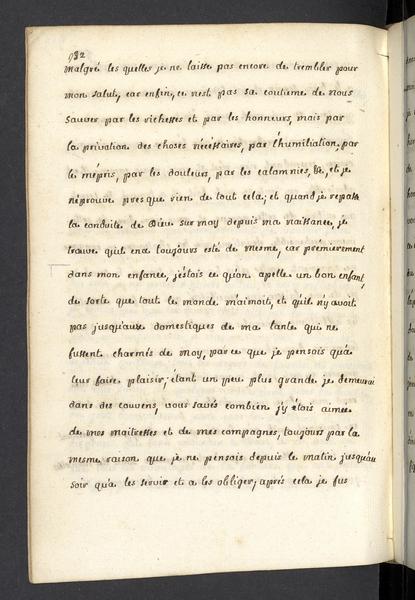 982
malgré les quelles je ne laisse pas encore de trembler pour
mon salut, car enfin, ce n'est pas sa coutume de nous
sauver par les richesses et par les honneurs, mais par
la privation des choses nécéssaires, par l'humiliation, par
le mépris, par les douleurs, par les calomnies, &c, et je
n'eprouve presque rien de tout cela; et quand je repasse
la conduite de Dieu sur moy depuis ma naissance, je
trouve qu'il en a toujours esté de mesme, car prémierement
dans mon enfance, j'estois ce qu'on apelle un bon enfant,
de sorte que tout le monde m'aimoit, et qu'il n'y avoit
pas jusqu'aux domestiques de ma tante qui ne
fussent charmés de moy, parce que je pensois qu'a
leur faire plaisir; étant un peu plus grande je demeurai
dans des couvens, vous savés combien j'y étois aimée
de mes maitresses et de mes compagnes, toujours par la
mesme raison que je ne pensois depuis le matin jusqu'au
soir qu'a les servir et a les obliger; aprés cela je fus